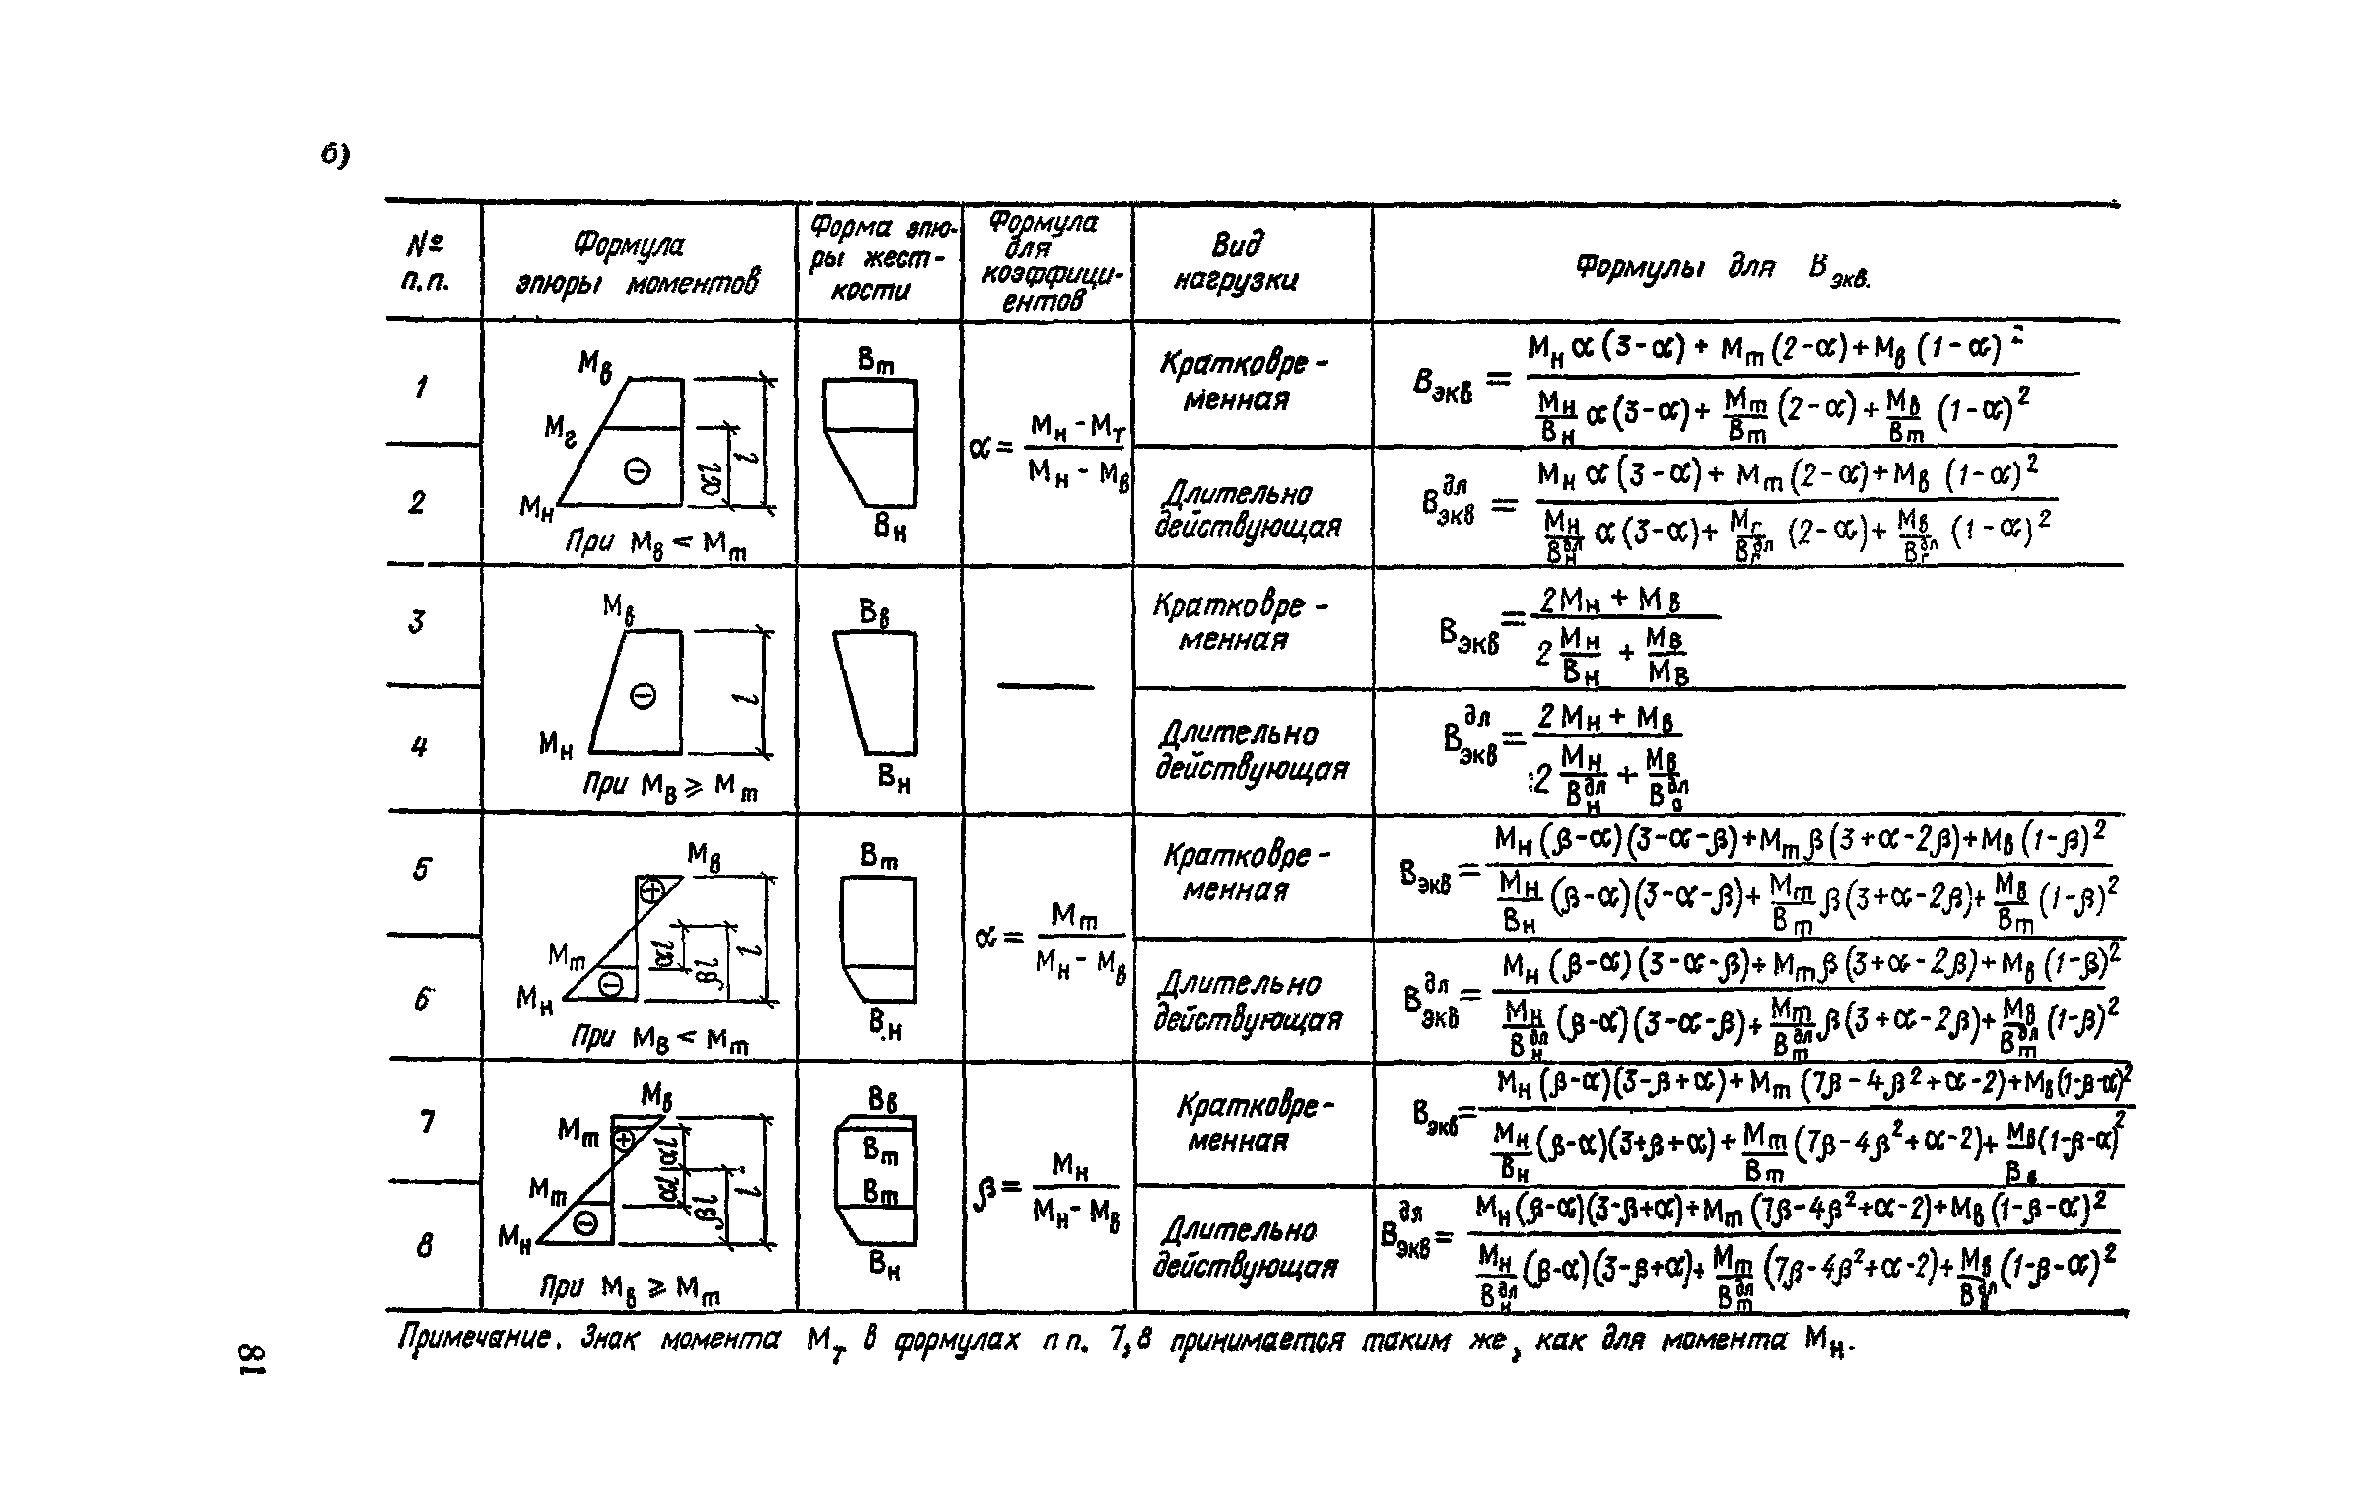 б)
№ п.п.
Формула эпюры моментов
Форма эпю-
ры жест-
кости
Формула
для
коэффици-
ентов
Вид
нагрузки
Формулы для Bэкв.
1
Mв
Mг
Mн
αl
l
⊖
При Mв < Mт
Bт
Bн
α = (Mн - Mт) / (Mн - Mв)
Кратковре-
менная
Bэкв = (Mн α(3-α) + Mт(2-α) + Mв(1-α)²) / (Mн/Bн α(3-α) + Mт/Bт (2-α) + Mв/Bт (1-α)²)
2
Длительно
действующая
Bэкв^дл = (Mн α(3-α) + Mт(2-α) + Mв(1-α)²) / (Mн/Bн^дл α(3-α) + Mг/Bг^дл (2-α) + Mв/Bг^дл (1-α)²)
3
Mв
Mн
l
⊖
При Mв ≥ Mт
Bв
Bн
—
Кратковре-
менная
Bэкв = (2Mн + Mв) / (2 Mн/Bн + Mв/Mв)
4
Длительно
действующая
Bэкв^дл = (2Mн + Mв) / (2 Mн/Bн^дл + Mв/B^дл)
5
Mв
Mт
Mн
⊕
⊖
αl
βl
l
При Mв < Mт
Bт
Bн
α = Mт / (Mн - Mв)
Кратковре-
менная
Bэкв = (Mн(β-α)(3-α-β) + Mтβ(3+α-2β) + Mв(1-β)²) / (Mн/Bн (β-α)(3-α-β) + Mт/Bт β(3+α-2β) + Mв/Bт (1-β)²)
6
Длительно
действующая
Bэкв^дл = (Mн(β-α)(3-α-β) + Mтβ(3+α-2β) + Mв(1-β)²) / (Mн/Bн^дл (β-α)(3-α-β) + Mт/Bт^дл β(3+α-2β) + Mв/Bт^дл (1-β)²)
7
Mв
Mт
Mт
Mн
⊕
⊖
αl
αl
βl
l
При Mв ≥ Mт
Bв
Bт
Bт
Bн
β = Mн / (Mн - Mв)
Кратковре-
менная
Bэкв = (Mн(β-α)(3-β+α) + Mт(7β-4β²+α-2) + Mв(1-β-α)²) / (Mн/Bн (β-α)(3+β+α) + Mт/Bт (7β-4β²+α-2) + Mв/Bв (1-β-α)²)
8
Длительно
действующая
Bэкв^дл = (Mн(β-α)(3-β+α) + Mт(7β-4β²+α-2) + Mв(1-β-α)²) / (Mн/Bн^дл (β-α)(3-β+α) + Mт/Bт^дл (7β-4β²+α-2) + Mв/Bв^дл (1-β-α)²)
Примечание. Знак момента Mт в формулах п п. 7,8 принимается таким же, как для момента Mн.
81